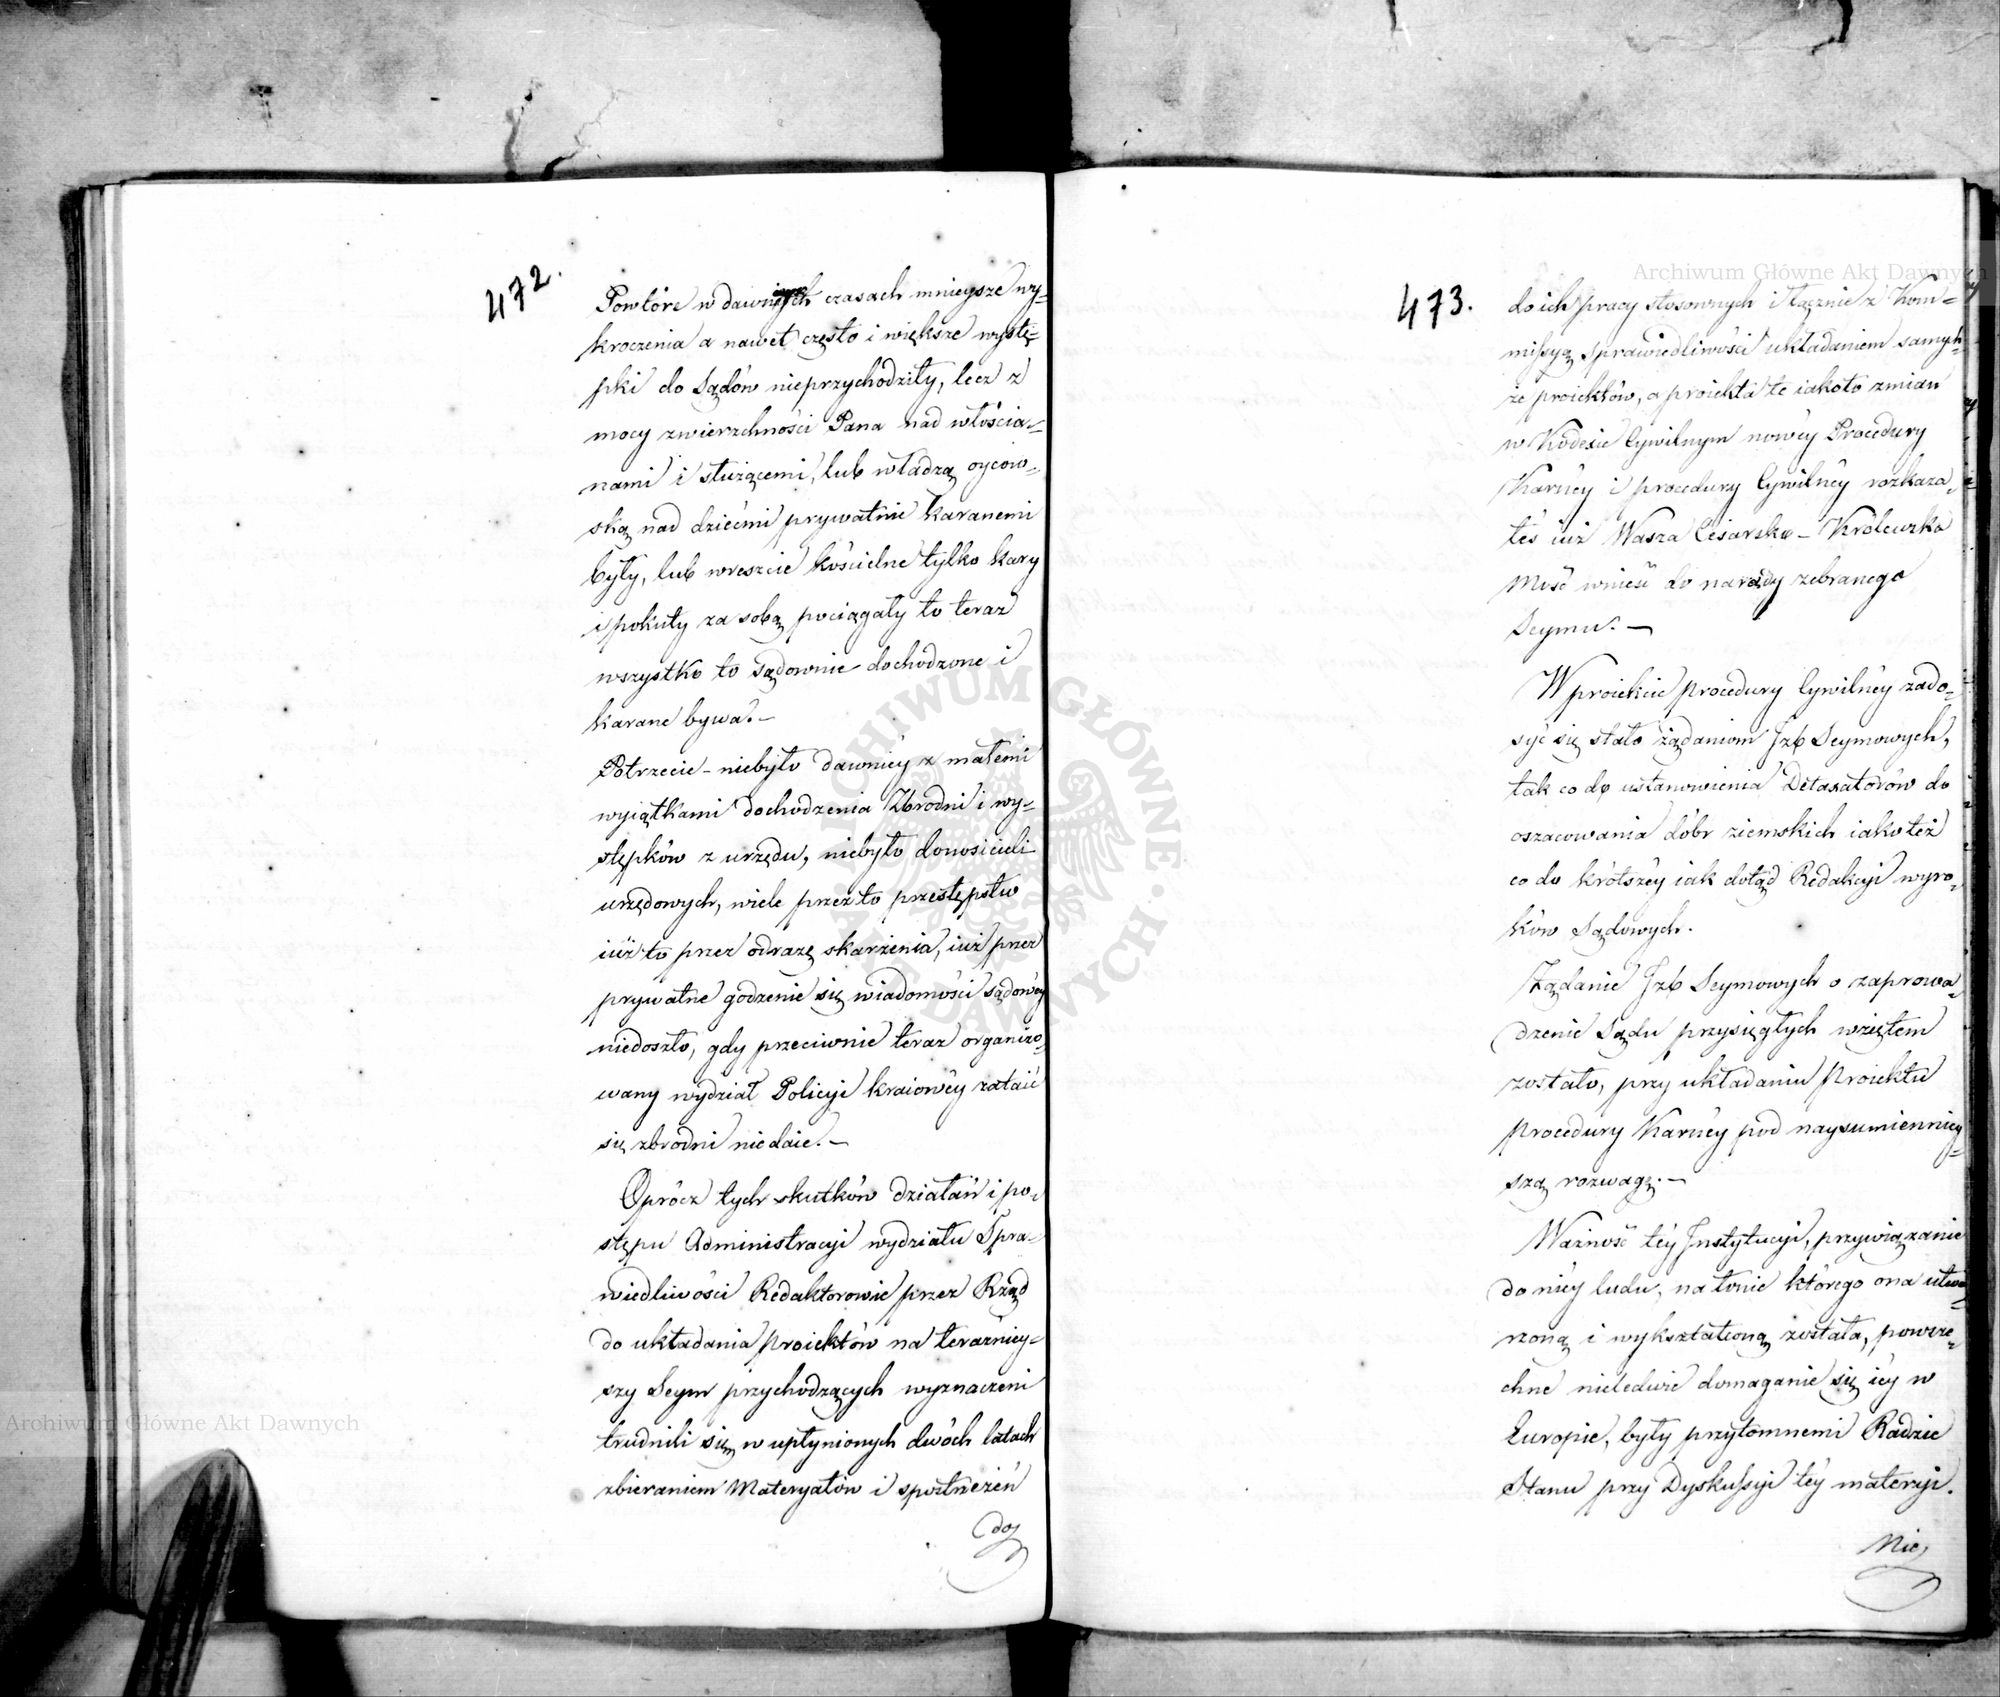 472.
Powtóre w dawnych czasach mnieysze wy=
kroczenia a nawet często i większe wystę=
pki do Sądów nieprzychodziły, lecz z
mocy zwierzchności Pana nad włościa=
nami i służącemi, lub władzą oycow=
ską nad dziećmi prywatnie karanemi
były, lub wreszcie kościelne tylko kary
i pokuty za sobą pociągały to teraz
wszystko to sądownie dochodzone i
karane bywa. –
Potrzecie – niebyło dawniéy z małemi
wyiątkami dochodzenia Zbrodni i wy=
stępków z urzędu, niebyło donosicieli
urzędowych, wiele przez to przestępstw
iuż to przez odrazę skarżenia, iuż przez
prywatne godzenie się wiadomości sądowéy
niedoszło, gdy przeciwnie teraz organizo=
wany wydział Policyi kraiowéy zataić
się zbrodni niedaie. –
Oprócz tych skutków działań i po=
stępu Administracyi wydziału Spra=
wiedliwości Redaktorowie przez Rząd
do układania proiektów na teraźniey=
szy Seym przychodzących wyznaczeni
trudnili się w upłynionych dwóch latach
zbieraniem Materyałów i spostrzeżeń
do
473.
do ich pracy stosownych i łącznie z Kom=
missyą Sprawiedliwości układaniem samych=
że proiektów, a proiekta te iakoto zmian
w Kodexie Cywilnym nowéy Procedury
Karnéy i procedury Cywilnéy rozkaza=
łeś iuż Wasza Cesarsko – Królewska
Mość wnieść do narady zebranego
Seymu. –
W proiekcie procedury Cywilnéy zado=
syć się stało żądaniom Izb Seymowych,
tak co do ustanowienia Detaxatorów do
oszacowania dóbr ziemskich iako też
co do krótszéy iak dotąd Redakcyi wyro=
ków Sądowych.
Żądanie Izb Seymowych o zaprowa=
dzenie Sądu przysięgłych wziętem
zostało, przy układaniu Proiektu
procedury Karnéy pod naysumienniey=
szą rozwagę. –
Ważność téy Instytucyi, przywiązanie
do niéy ludu, na łonie którego ona utwo=
rzoną i wykształconą została, powsze=
chne nieledwie domaganie się iéy w
Europie, były przytomnemi Radzie
Stanu przy Dyskussyi téy materyi.
Nie
Archiwum Główne Akt Dawnych
Archiwum Główne Akt Dawnych
ARCHIWUM GŁÓWNE AKT DAWNYCH